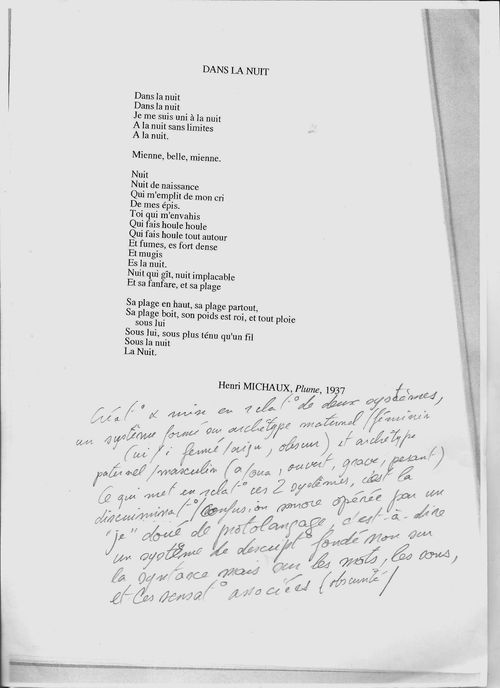 DANS LA NUIT
Dans la nuit
Dans la nuit
Je me suis uni à la nuit
A la nuit sans limites
A la nuit.
Mienne, belle, mienne.
Nuit
Nuit de naissance
Qui m'emplit de mon cri
De mes épis.
Toi qui m'envahis
Qui fais houle houle
Qui fais houle tout autour
Et fumes, es fort dense
Et mugis
Es la nuit.
Nuit qui gît, nuit implacable
Et sa fanfare, et sa plage
Sa plage en haut, sa plage partout,
Sa plage boit, son poids est roi, et tout ploie
sous lui
Sous lui, sous plus ténu qu'un fil
Sous la nuit
La Nuit.
Henri MICHAUX, Plume, 1937
Créat° & mise en relat° de deux systèmes,
un système fermé ou archétype maternel/féminin
(ui/i fermé/aigu, obscur) et archétype
paternel/masculin (a/oua, ouvert, grave, pesant)
Ce qui met en relat° ces 2 systèmes, c'est la
discriminat°/confusion sonore opérée par un
"je" doué de protolangage, c'est-à-dire
un système de descript° fondé non sur
la syntaxe mais sur les mots, les sons,
et les sensat° associées (obscurité/